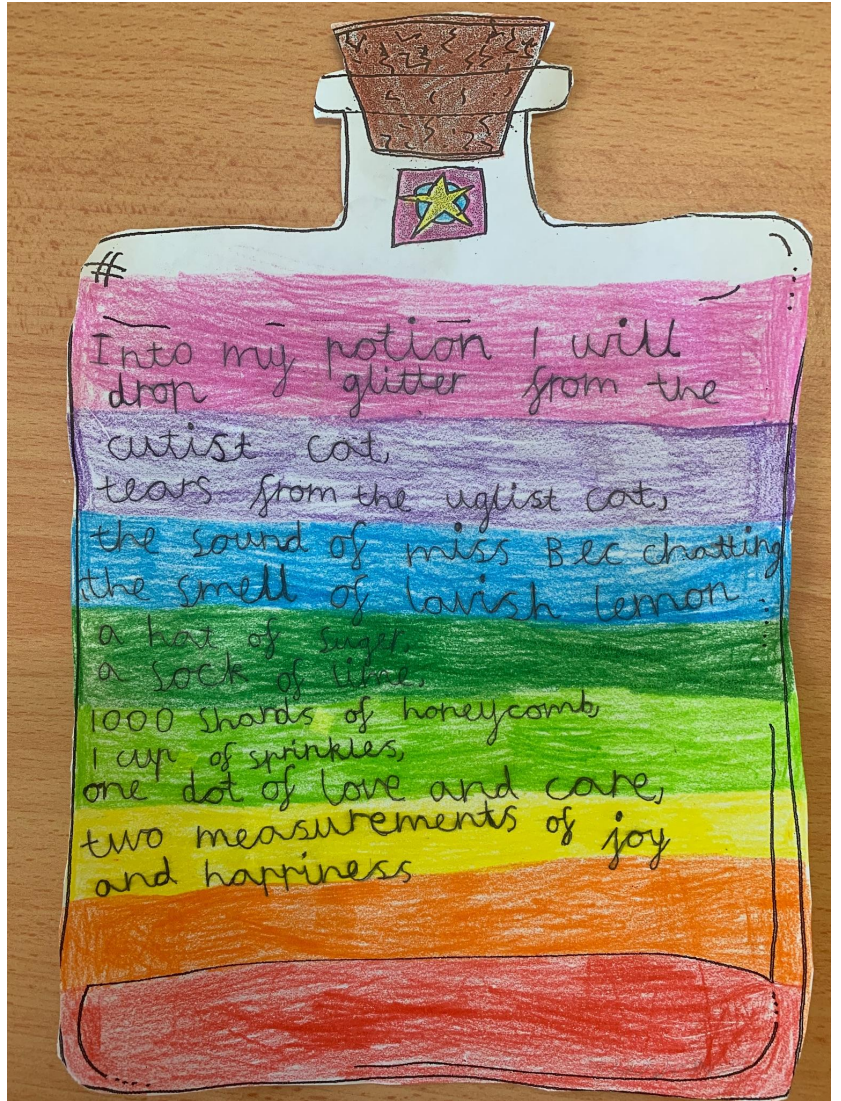 Into my potion I will
drop glitter from the
cutist cat,
tears from the uglist cat,
the sound of miss Bec chatting
the smell of lavish lemon
a hat of suger,
a sock of lime,
1000 shards of honeycomb,
1 cup of sprinkles,
one dot of love and care,
two measurements of joy
and happiness